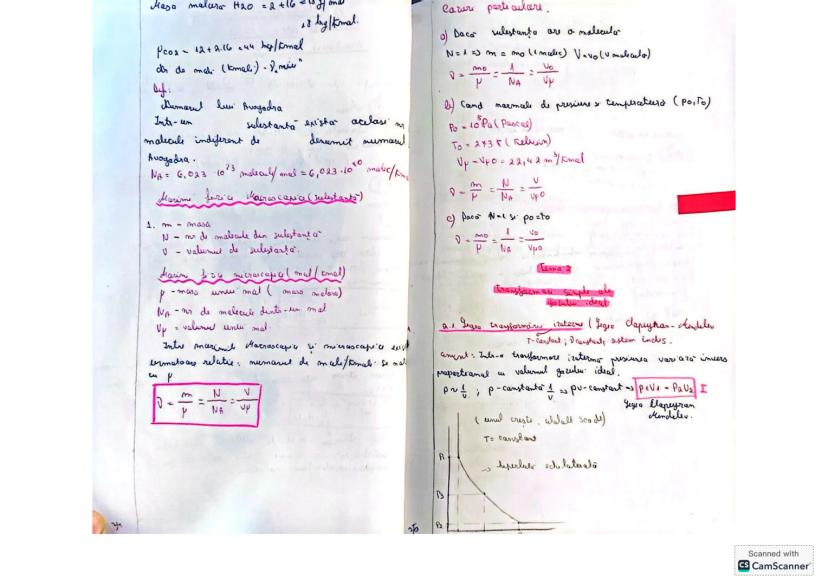 Masa molara H2O = 2 + 16 = 18 g/mol
18 kg/kmol.
μCO2 = 12 + 2.16 = 44 kg/kmol
nr de moli (kmoli) - ν „niu"
Def:
Numarul lui Avogadro
Intr-un substanta exista acelasi nr
molecule indiferent de denumit numarul
Avogadro.
NA = 6,023 · 10^23 molecule/mol = 6,023 · 10^20 molec/kmol
Marimi fizice Macroscopice (substanta)
1. m - masa
N - nr de molecule din substanta
V - volumul de substanta.
Marimi fizice microscopice (mol/kmol)
μ - masa unui mol ( masa molara)
NA - nr de molecule dintr-un mol
Vμ = volumul unui mol.
Intre marimile Macroscopice si microscopice exis
urmatoare relatie: numarul de moli/kmoli.
cu μ
ν = m/μ = N/NA = V/Vμ
Cazuri particulare.
a) Daca substanta are o molecula
N = 1 => m = mo (1 molec) V = vo (1 molecula)
ν = mo/μ = 1/NA = vo/Vμ
b) Cond normale de presiune si temperatura (po, To)
Po = 10^5 Pa (Pascal)
To = 273 K (Kelvin)
Vμ = Vμo = 22,42 m^3/kmol
ν = m/μ = N/NA = V/Vμo
c) Daca N=1 si po=to
ν = mo/μ = 1/NA = vo/Vμo
Tema 2
Transformari simple ale
gazului ideal
2.1. Legea transformarii izoterme (Legea Clapeyron-Mendeleev
T-constant, ν constant, sistem inchis.
enunt: Intr-o transformare izoterma presiunea variaza invers
proportional cu volumul gazului ideal.
p ~ 1/V ; p = constanta 1/V => pV = constant => p1V1 = P2V2 I
Legea Clapeyron
Mendeleev.
( unul creste, celalalt scade)
T = constant
P1
-> hiperbola echilaterala
P3
P2
Scanned with
CS CamScanner